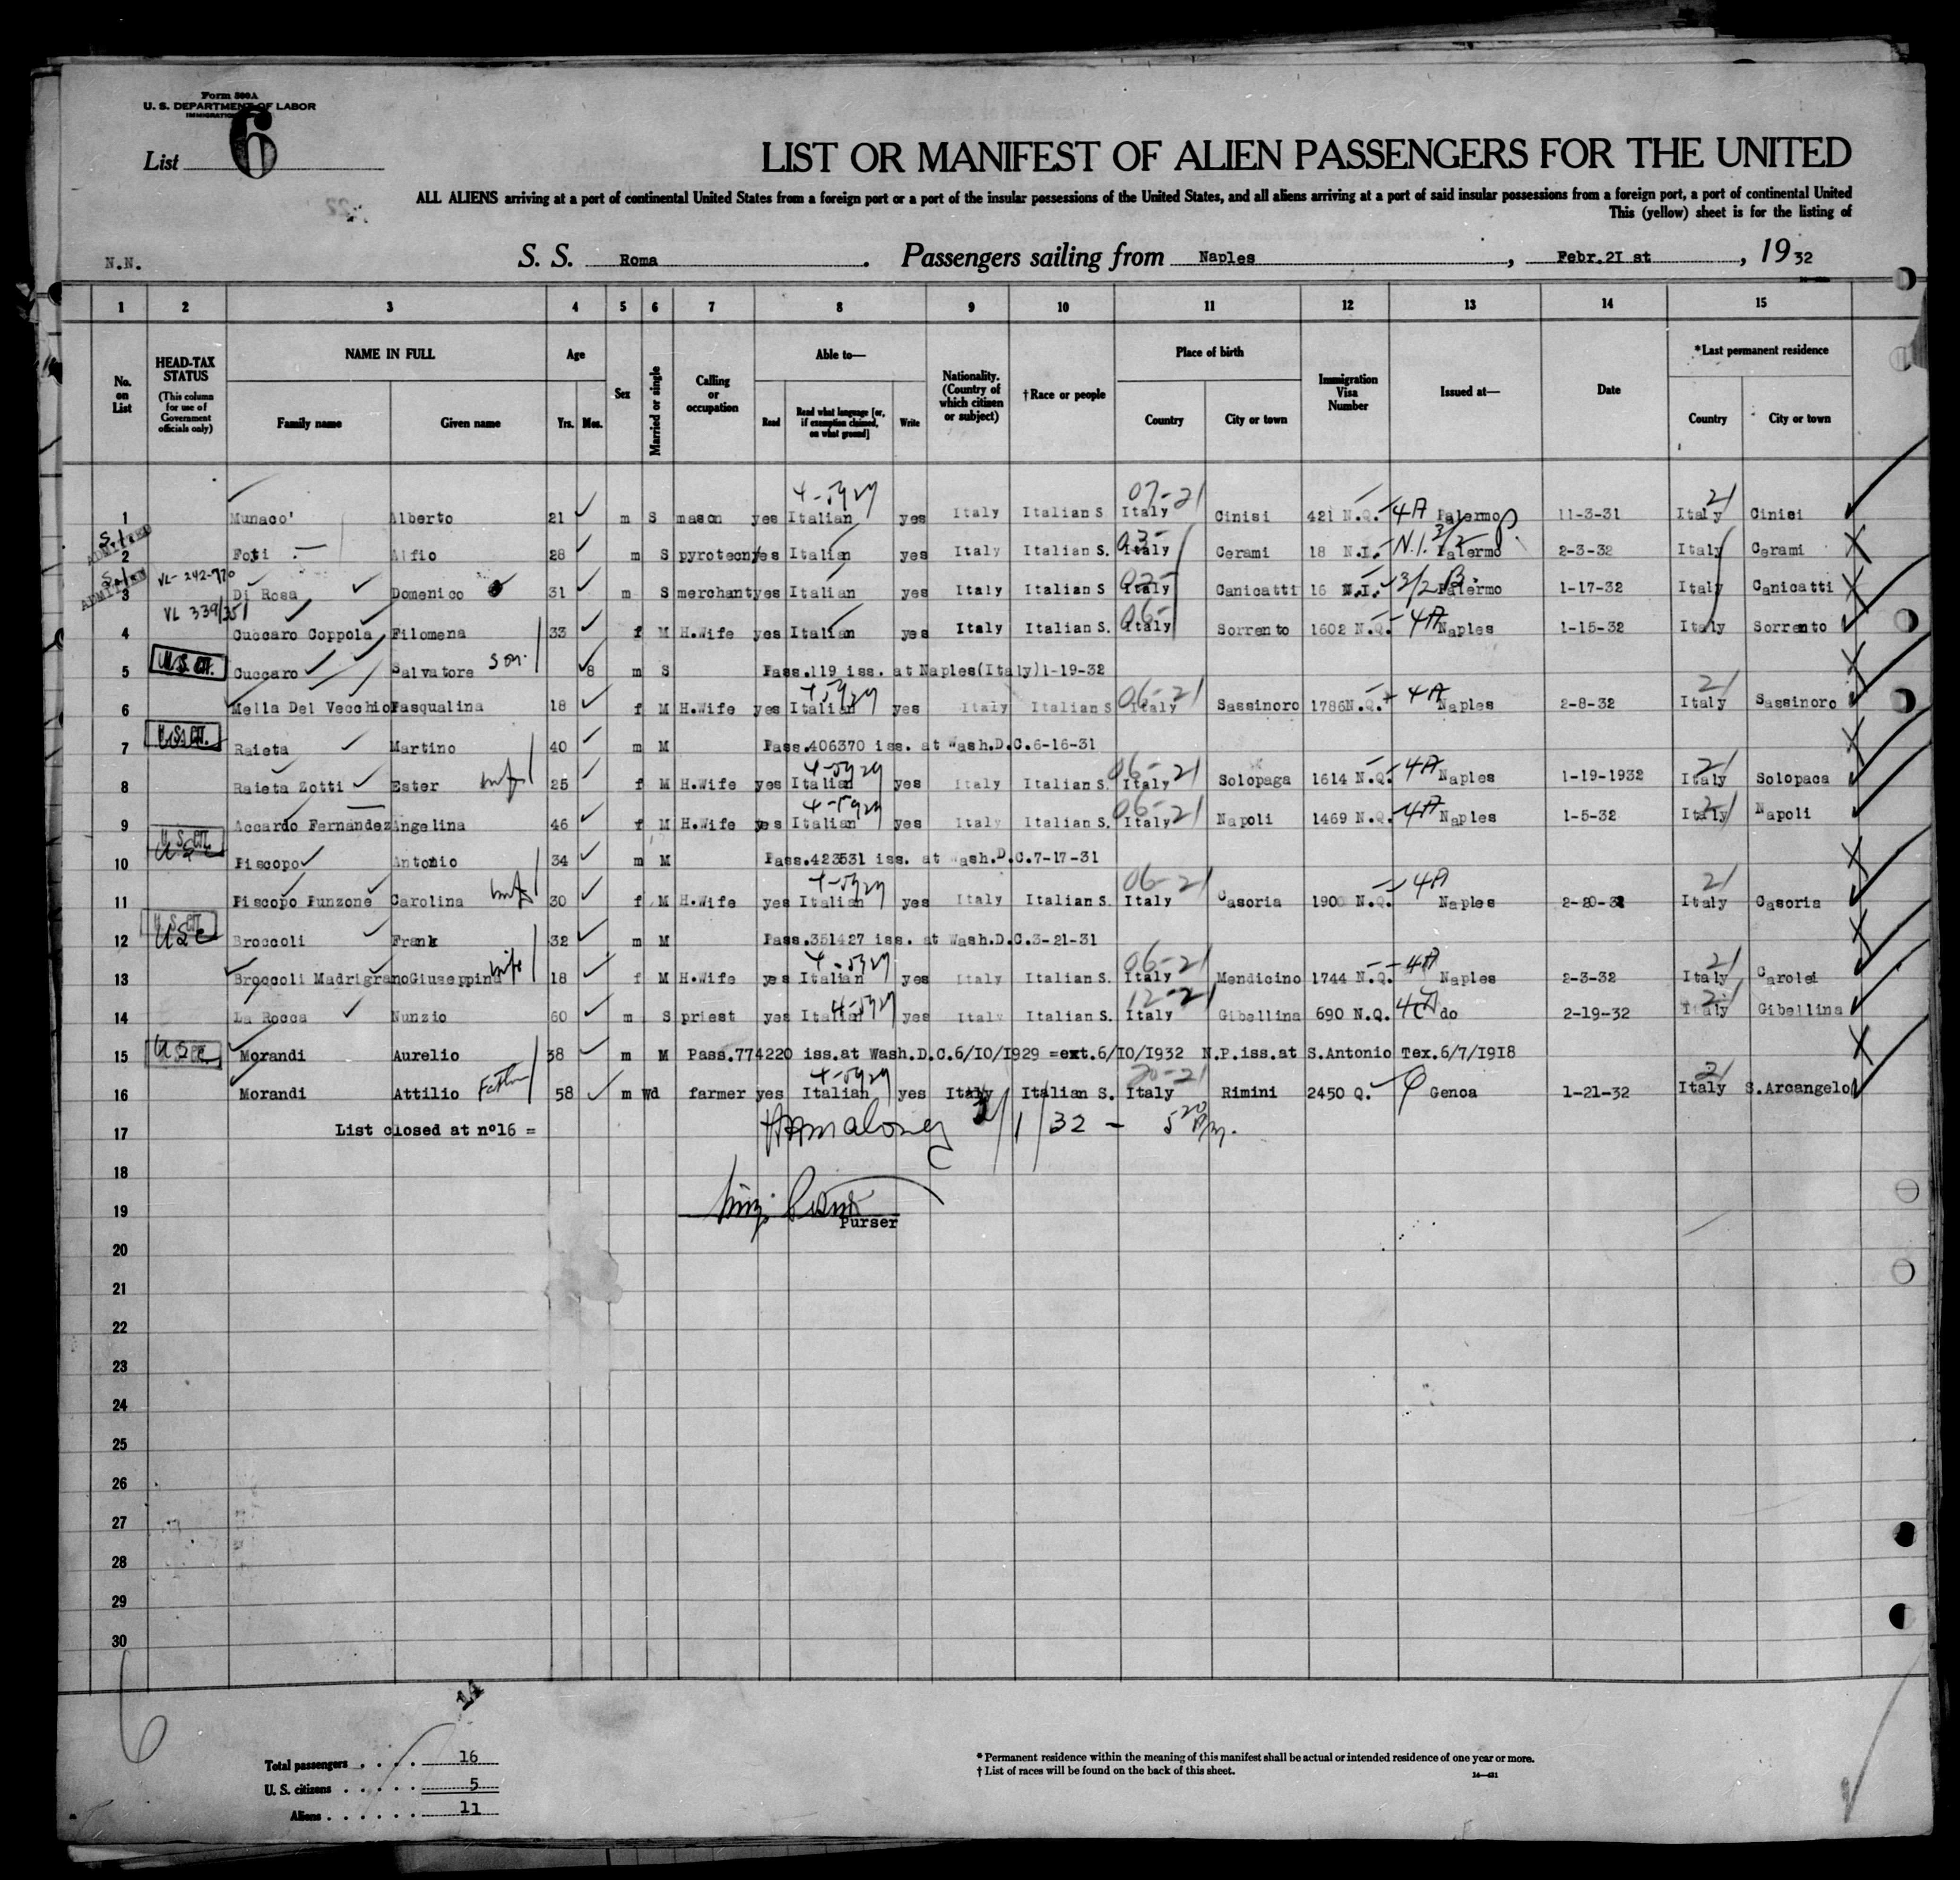 Form 500A
U. S. DEPARTMENT OF LABOR
IMMIGRATION
List 6
LIST OR MANIFEST OF ALIEN PASSENGERS FOR THE UNITED
ALL ALIENS arriving at a port of continental United States from a foreign port or a port of the insular possessions of the United States, and all aliens arriving at a port of said insular possessions from a foreign port, a port of continental United
This (yellow) sheet is for the listing of
N.N. S. S. Roma. Passengers sailing from Naples, Febr.2I st, 1932
1 2 3 4 5 6 7 8 9 10 11 12 13 14 15
No. on List HEAD-TAX STATUS (This column for use of Government officials only) NAME IN FULL Family name Given name Age Yrs. Mos. Sex Married or single Calling or occupation Able to— Read Read what language [or, if exemption claimed, on what ground] Write Nationality. (Country of which citizen or subject) †Race or people Place of birth Country City or town Immigration Visa Number Issued at— Date *Last permanent residence Country City or town
1 Munaco' Alberto 21 m S mason yes Italian yes Italy Italian S 07-21 Italy Cinisi 421 N.Q. 4A Palermo 11-3-31 21 Italy Cinisi
S.I. ADMITTED 2 Foti Alfio 28 m S pyrotecn yes Italian yes Italy Italian S. Italy Cerami 18 N.I. N.I. 3/2 Palermo 2-3-32 Italy Cerami
S.I. ADMITTED 3 VL-242-770 Di Rosa Domenico 31 m S merchant yes Italian yes Italy Italian S Italy Canicatti 16 N.I. 3/2 Palermo 1-17-32 Italy Canicatti
4 VL 339/351 Cuccaro Coppola Filomena 33 f M H.Wife yes Italian yes Italy Italian S. 06- Italy Sorrento 1602 N.Q. 4A Naples 1-15-32 Italy Sorrento
5 U.S. CIT. Cuccaro Salvatore son 8 m S Pass.119 iss. at Naples(Italy)1-19-32
6 Mella Del Vecchio Pasqualina 18 f M H.Wife yes Italian yes Italy Italian S 06-21 Italy Sassinoro 1786N.Q. 4A Naples 2-8-32 21 Italy Sassinoro
7 U.S. CIT. Raieta Martino 40 m M Pass.406370 iss. at Wash.D.C.6-16-31
8 Raieta Zotti Ester wife 25 f M H.Wife yes Italian yes Italy Italian S. 06-21 Italy Solopaga 1614 N.Q. 4A Naples 1-19-1932 21 Italy Solopaca
9 Accardo Fernandez Angelina 46 f M H.Wife yes Italian yes Italy Italian S. 06-21 Italy Napoli 1469 N.Q. 4A Naples 1-5-32 21 Italy Napoli
10 U.S. CIT. USC Piscopo Antonio 34 m M Pass.423531 iss. at Wash.D.C.7-17-31
11 Piscopo Funzone Carolina wife 30 f M H.Wife yes Italian yes Italy Italian S. 06-21 Italy Casoria 1900 N.Q. 4A Naples 2-20-32 21 Italy Casoria
12 U.S. CIT. USC Broccoli Frank 32 m M Pass.351427 iss. at Wash.D.C.3-21-31
13 Broccoli Madrigrano Giuseppina wife 18 f M H.Wife yes Italian yes Italy Italian S. 06-21 Italy Mendicino 1744 N.Q. 4A Naples 2-3-32 21 Italy Carolei
14 La Rocca Nunzio 60 m S priest yes Italian yes Italy Italian S. 12-21 Italy Gibellina 690 N.Q. do 2-19-32 21 Italy Gibellina
15 USC Morandi Aurelio 38 m M Pass.774220 iss.at Wash.D.C.6/IO/I929 =ext.6/IO/I932 N.P.iss.at S.Antonio Tex.6/7/I918
16 Morandi Attilio Father 58 m Wd farmer yes Italian yes Italy Italian S. 20-21 Italy Rimini 2450 Q. Genoa 1-21-32 21 Italy S.Arcangelo
17 List closed at n°16 = 3/1/32 -
18
19
Purser
20
21
22
23
24
25
26
27
28
29
30
6
14
Total passengers . . . . 16
U. S. citizens . . . . . 5
Aliens . . . . . . 11
* Permanent residence within the meaning of this manifest shall be actual or intended residence of one year or more.
† List of races will be found on the back of this sheet.